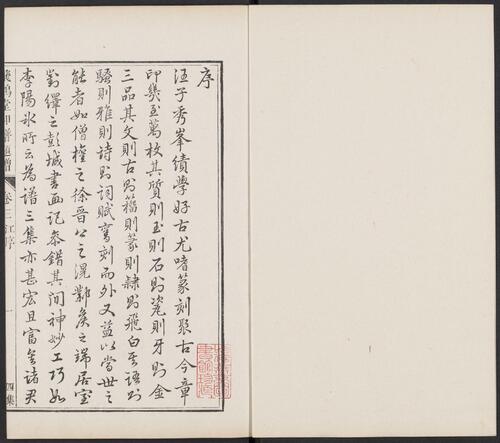 序
汪子秀峯績學好古尤嗜篆刻聚古今章
印幾至萬枚其質則玉則石則瓷則牙則金
三品其文則古則籀則篆則隷則飛白其語則
騷則雅則詩則詞賦舊刻而外又益以當世之
能者如僧權之徐晉公之混鄴矦之端居室
對繹之彭城書画記叅錯其間神妙工巧如
李陽冰所云爲譜三集亦甚宏且富矣諸君
堂印譜
卷三 江序
一
四集